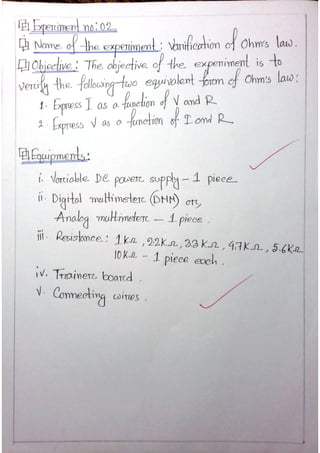 Experiment no: 02
Name of the experiment: Varification of Ohm's law.
Objective: The objective of the experiment is to
verify the following two equivalent form of Ohm's law:
1. Express I as a function of V and R
2. Express V as a function of I and R
Equipments:
i. Variable DC power supply - 1 piece
ii. Digital multimeter (DMM) or,
Analog multimeter - 1 piece.
iii. Resistance: 1kΩ, 2.2kΩ, 3.3kΩ, 4.7kΩ, 5.6kΩ
10kΩ - 1 piece each.
iv. Trainer board.
v. Connecting wires.